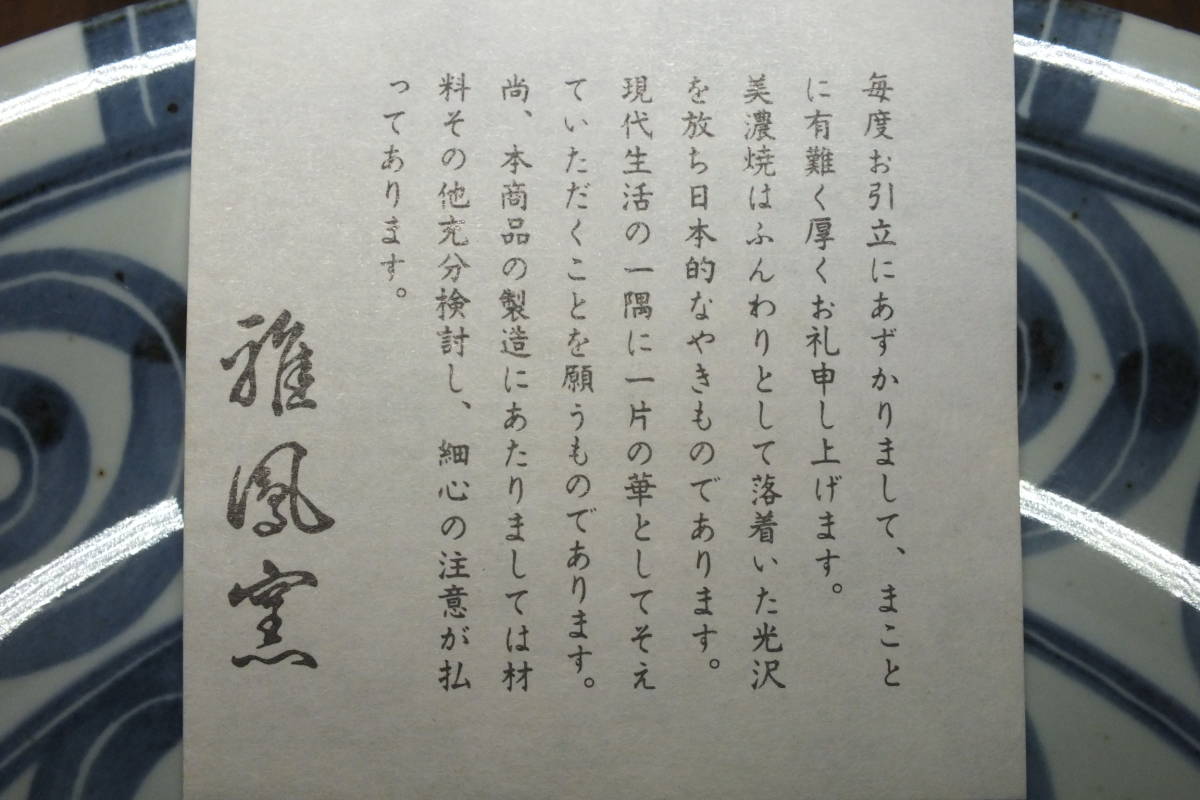 毎度お引立にあずかりまして、まこと
に有難く厚くお礼申し上げます。
美濃焼はふんわりとして落着いた光沢
を放ち日本的なやきものであります。
現代生活の一隅に一片の華としてそえ
ていただくことを願うものであります。
尚、本商品の製造にあたりましては材
料その他充分検討し、細心の注意が払
ってあります。
雅鳳窯